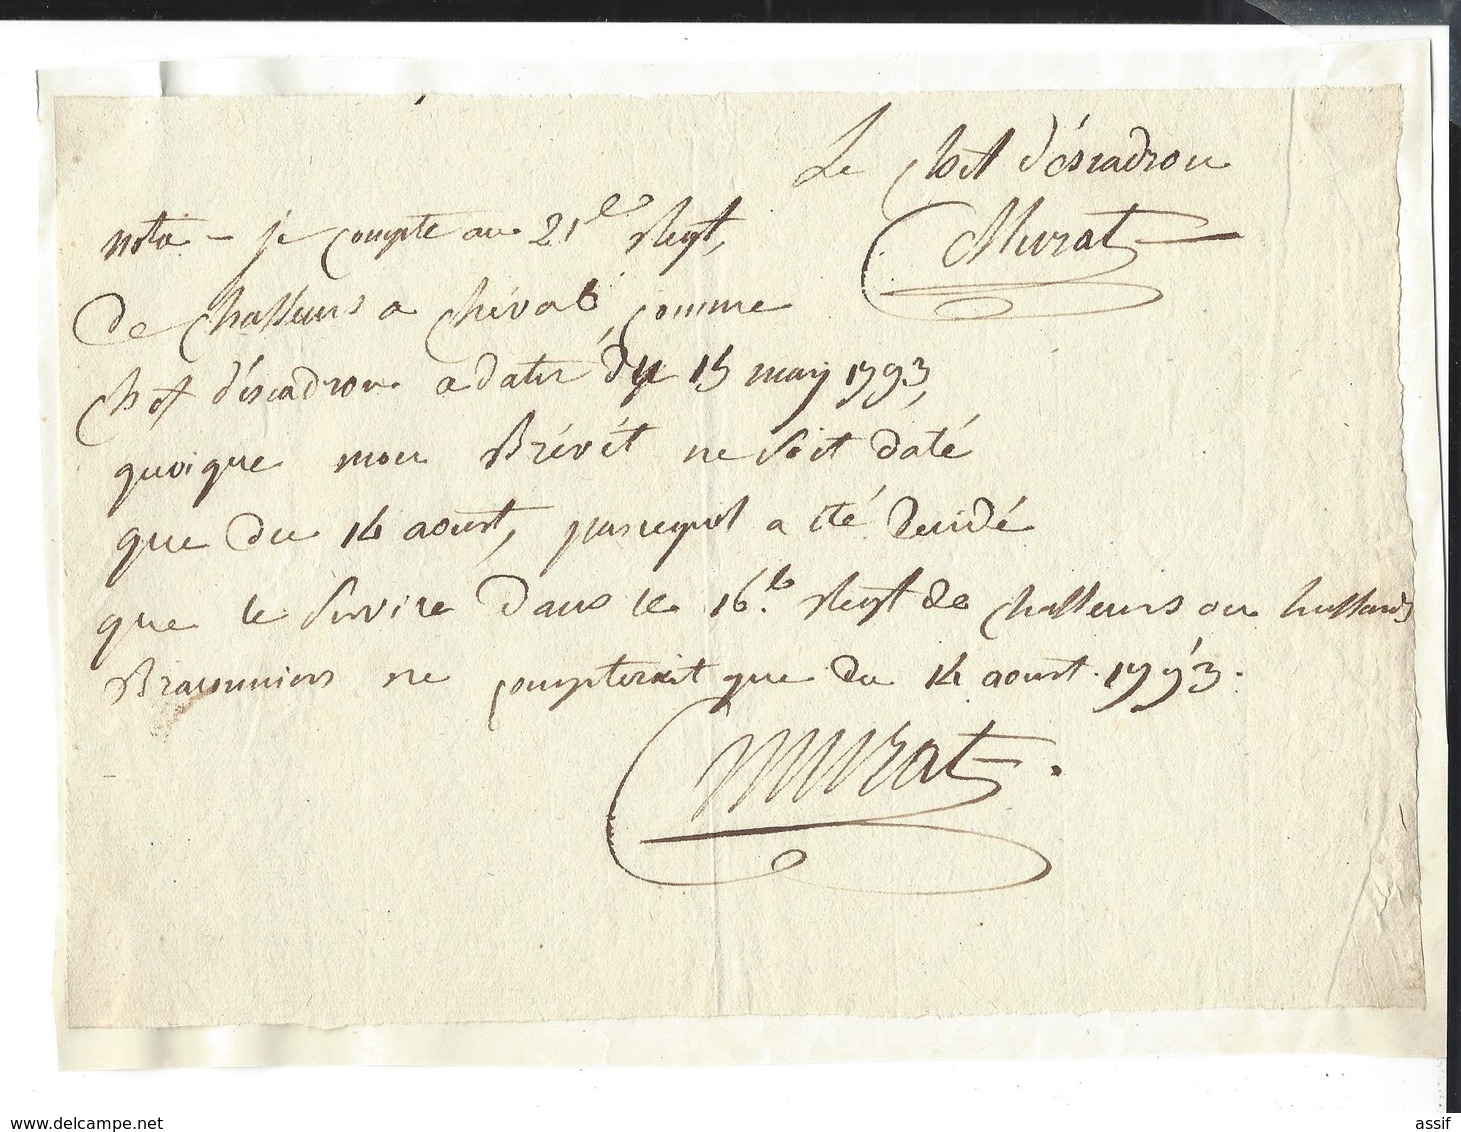 Le chef d'éscadron
Murat
nota - je compte au 21e Regt,
de chasseurs a chéval, comme
chef d'éscadron a datér du 15 may 1793,
quoique mon Brévét ne soit daté
que du 14 aoust, parcequil a été décidé
que le service dans le 16e Regt de chasseurs ou hussards
Braconniers ne compterait que du 14 aoust. 1793.
Murat.
www.delcampe.net
assif